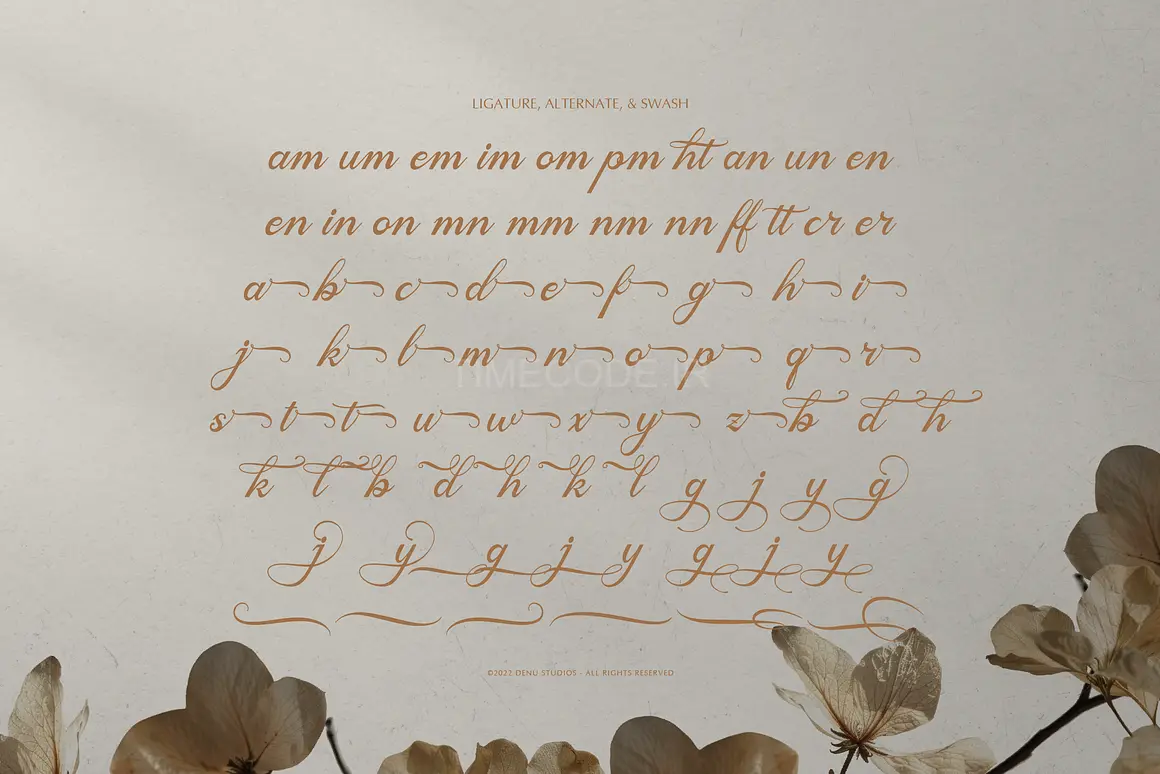 LIGATURE, ALTERNATE, & SWASH
am um em im om pm ht an un en
en in on mn mm nm nn ff tt cr er
a b c d e f g h i
j k l m n o p q r
TIMECODE.IR
s t t u w x y z b d h
k t b d h k l g j y g
j y g j y g j y
©2022 DENU STUDIOS - ALL RIGHTS RESERVED